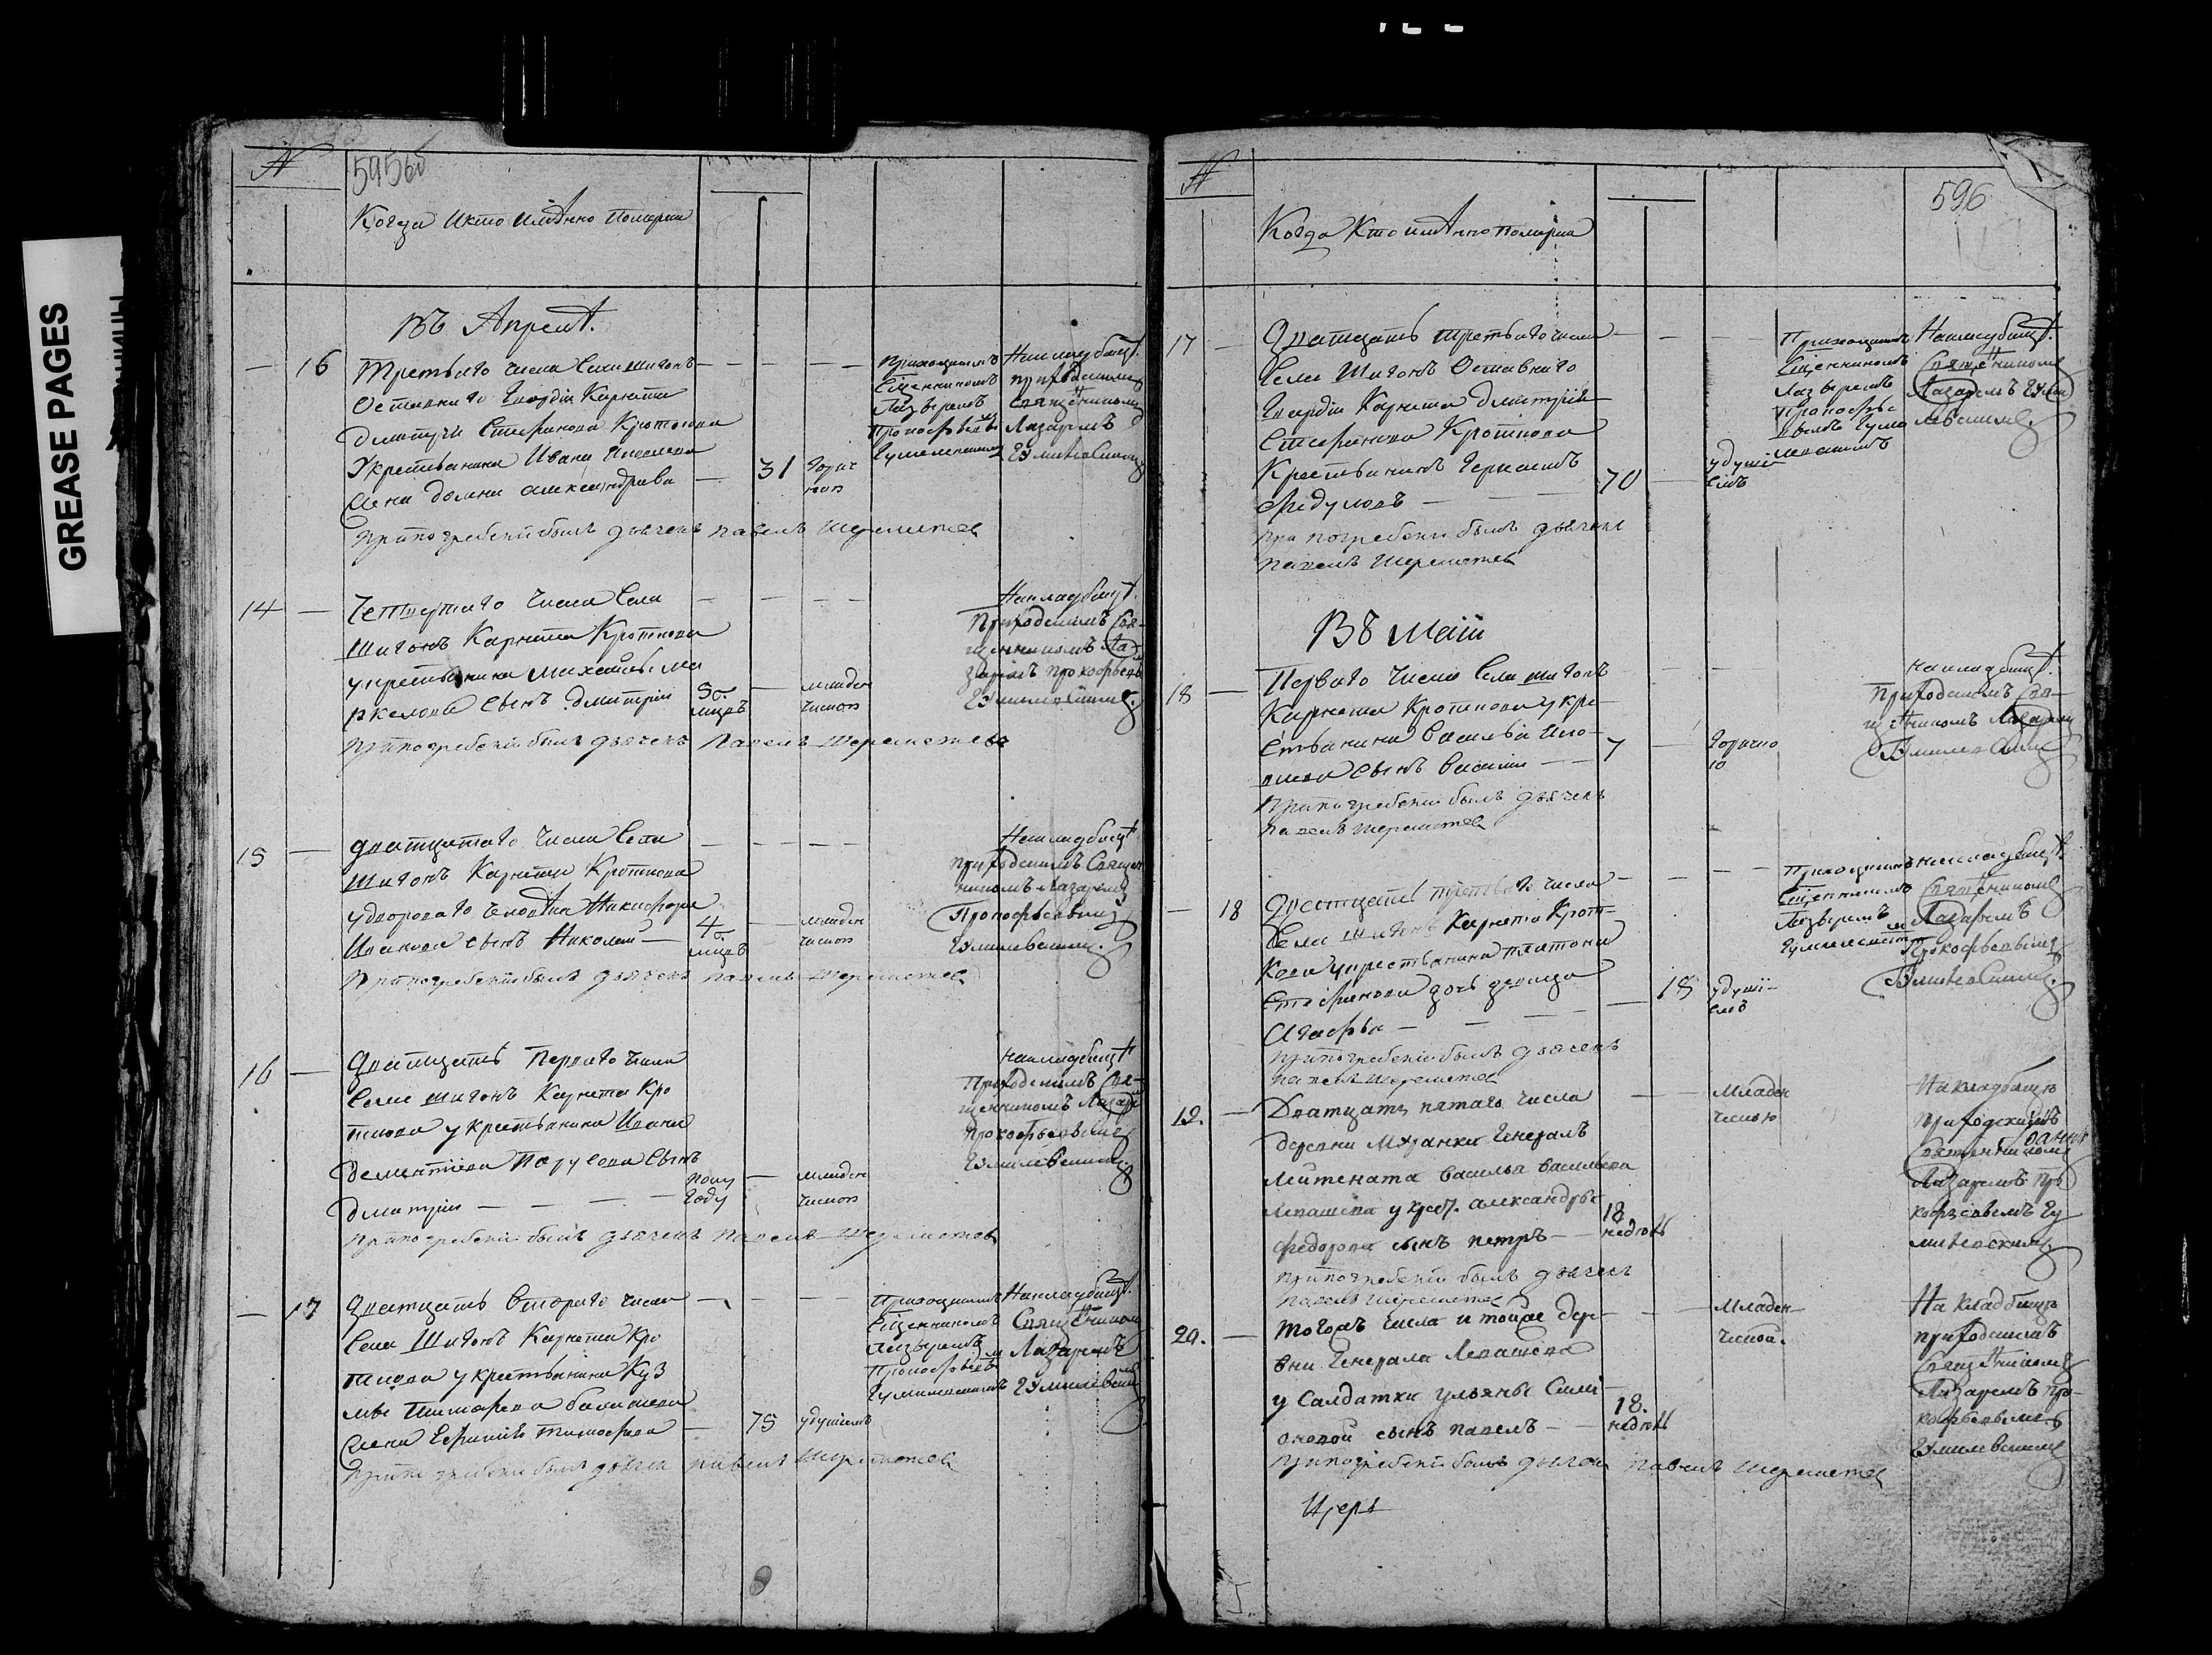 GREASE PAGES
№
595об
Когда и кто имянно померли
Въ Апреле.
16
Третьяго числа Села шигонъ
Оставнаго Гвардiи Карнета
Дмитрiи Стефанова Кроткова
У крестьянина Ивана
жена домна александрова
31
Горяч
кою
Приходскимъ
Священникомъ
Лазаремъ
Прокофьевымъ
Гумилевскимъ
На кладбище
приходскимъ
Священникомъ
Лазаремъ
Гумилевскимъ
При погребенiи былъ дьячекъ павелъ Шереметев
14
Четвертаго числа Села
Шигонъ Карнета Кроткова
у крестьянина Михаилы Ма
ркелова сынъ Дмитрiи
5.
мцовъ
младен
чискою
На кладбище.
Приходскимъ Свя-
щенникомъ Ла
заремъ прокофьев
Гумилевскимъ.
При погребенiи былъ дьячекъ Павелъ Шереметевъ
15
дватцатаго числа Села
Шигонъ Карнета Кроткова
у двороваго человека Никифора
Иванова сынъ Николай
4.
мцовъ
младен
чискою
На кладбище
приходскимъ Священ
никомъ Лазаремъ
Прокофьевымъ
Гумилевскимъ.
При погребенiи былъ дьячекъ павелъ Шереметев
16
Дватцать Перваго числа
Села шигонъ Карнета Кро
ткова у крестьянина Ивана
Дементiева сынъ
Дмитрiи
полу
году
младен
чискою
на кладбище
Приходскимъ Свя-
щенникомъ Лазаре
прокофьевымъ
Гумилевскимъ.
При погребенiи былъ дьячекъ павелъ Шереметев
17
Дватцать Втораго числа
Села Шигонъ Карнета Кро
ткова у крестьянина Куз
мы
жена тимофеева
75
удушьемъ
Приходскимъ
Священникомъ
Лазаремъ
Прокофьевым
Гумилевскимъ
На кладбище.
Священником
Лазаремъ
Гумилевским
При погребенiи былъ дьячек павелъ Шереметев
№
596
Когда Кто имянно померли
17
Дватцать третьяго числа
Села Шигонъ Оставнаго
Гвардiи Карнета Дмитрiя
Стефанова Кроткова
Крестьянинъ Герасимъ
Федуловъ
70
удушь
емъ
Приходскимъ
Священникомъ
Лазаремъ
Прокофье
вымъ Гуми
левскимъ
На кладбище.
Священникомъ
Лазаремъ Гуми
левскимъ.
При погребенiи былъ дьячекъ
павелъ Шереметев
Въ Маiи
18
Перваго числа Села шигонъ
Карнета Кроткова у кре
стьянина Василья
сынъ Василiи
7
Горячко
ю
на кладбище.
Приходскимъ Свя-
щенникомъ Лазарем
Гумилевским
При погребенiи былъ дьячекъ
павелъ Шереметев
18
Дватцать третьяго числа
Села Шигонъ Карнета Крот-
кова у крестьянина платона
Стефанова дочь девица
Агафья
18
удушь-
емъ
Приходскимъ
Священникомъ
Лазаремъ
Гумилевским
на кладбище.
Священникомъ
Лазаремъ
Прокофьевымъ
Гумилевскимъ.
При погребенiи былъ дьячекъ
павелъ Шереметев
19.
Дватцать пятаго числа
деревни Муранки Генералъ
Лейтената Василья Васильева
Левашева у крест. александры
Федорова сынъ петръ
18
недель
Младен
ческою
На кладбище
приходскимъ
Священникомъ
Лазаремъ про
кофьевымъ Гу
милевскимъ.
При погребенiи былъ дьячекъ
павелъ Шереметев
20.
того жъ числа и тойже дер-
вни Генерала Левашева
у Салдатки ульяны Семi-
оновой сынъ павелъ
18.
недель
Младен-
ческой.
На кладбище
приходскимъ
Священникомъ
Лазаремъ про-
кофьевымъ
Гумилевским
При погребенiи былъ дьячекъ павелъ Шереметев